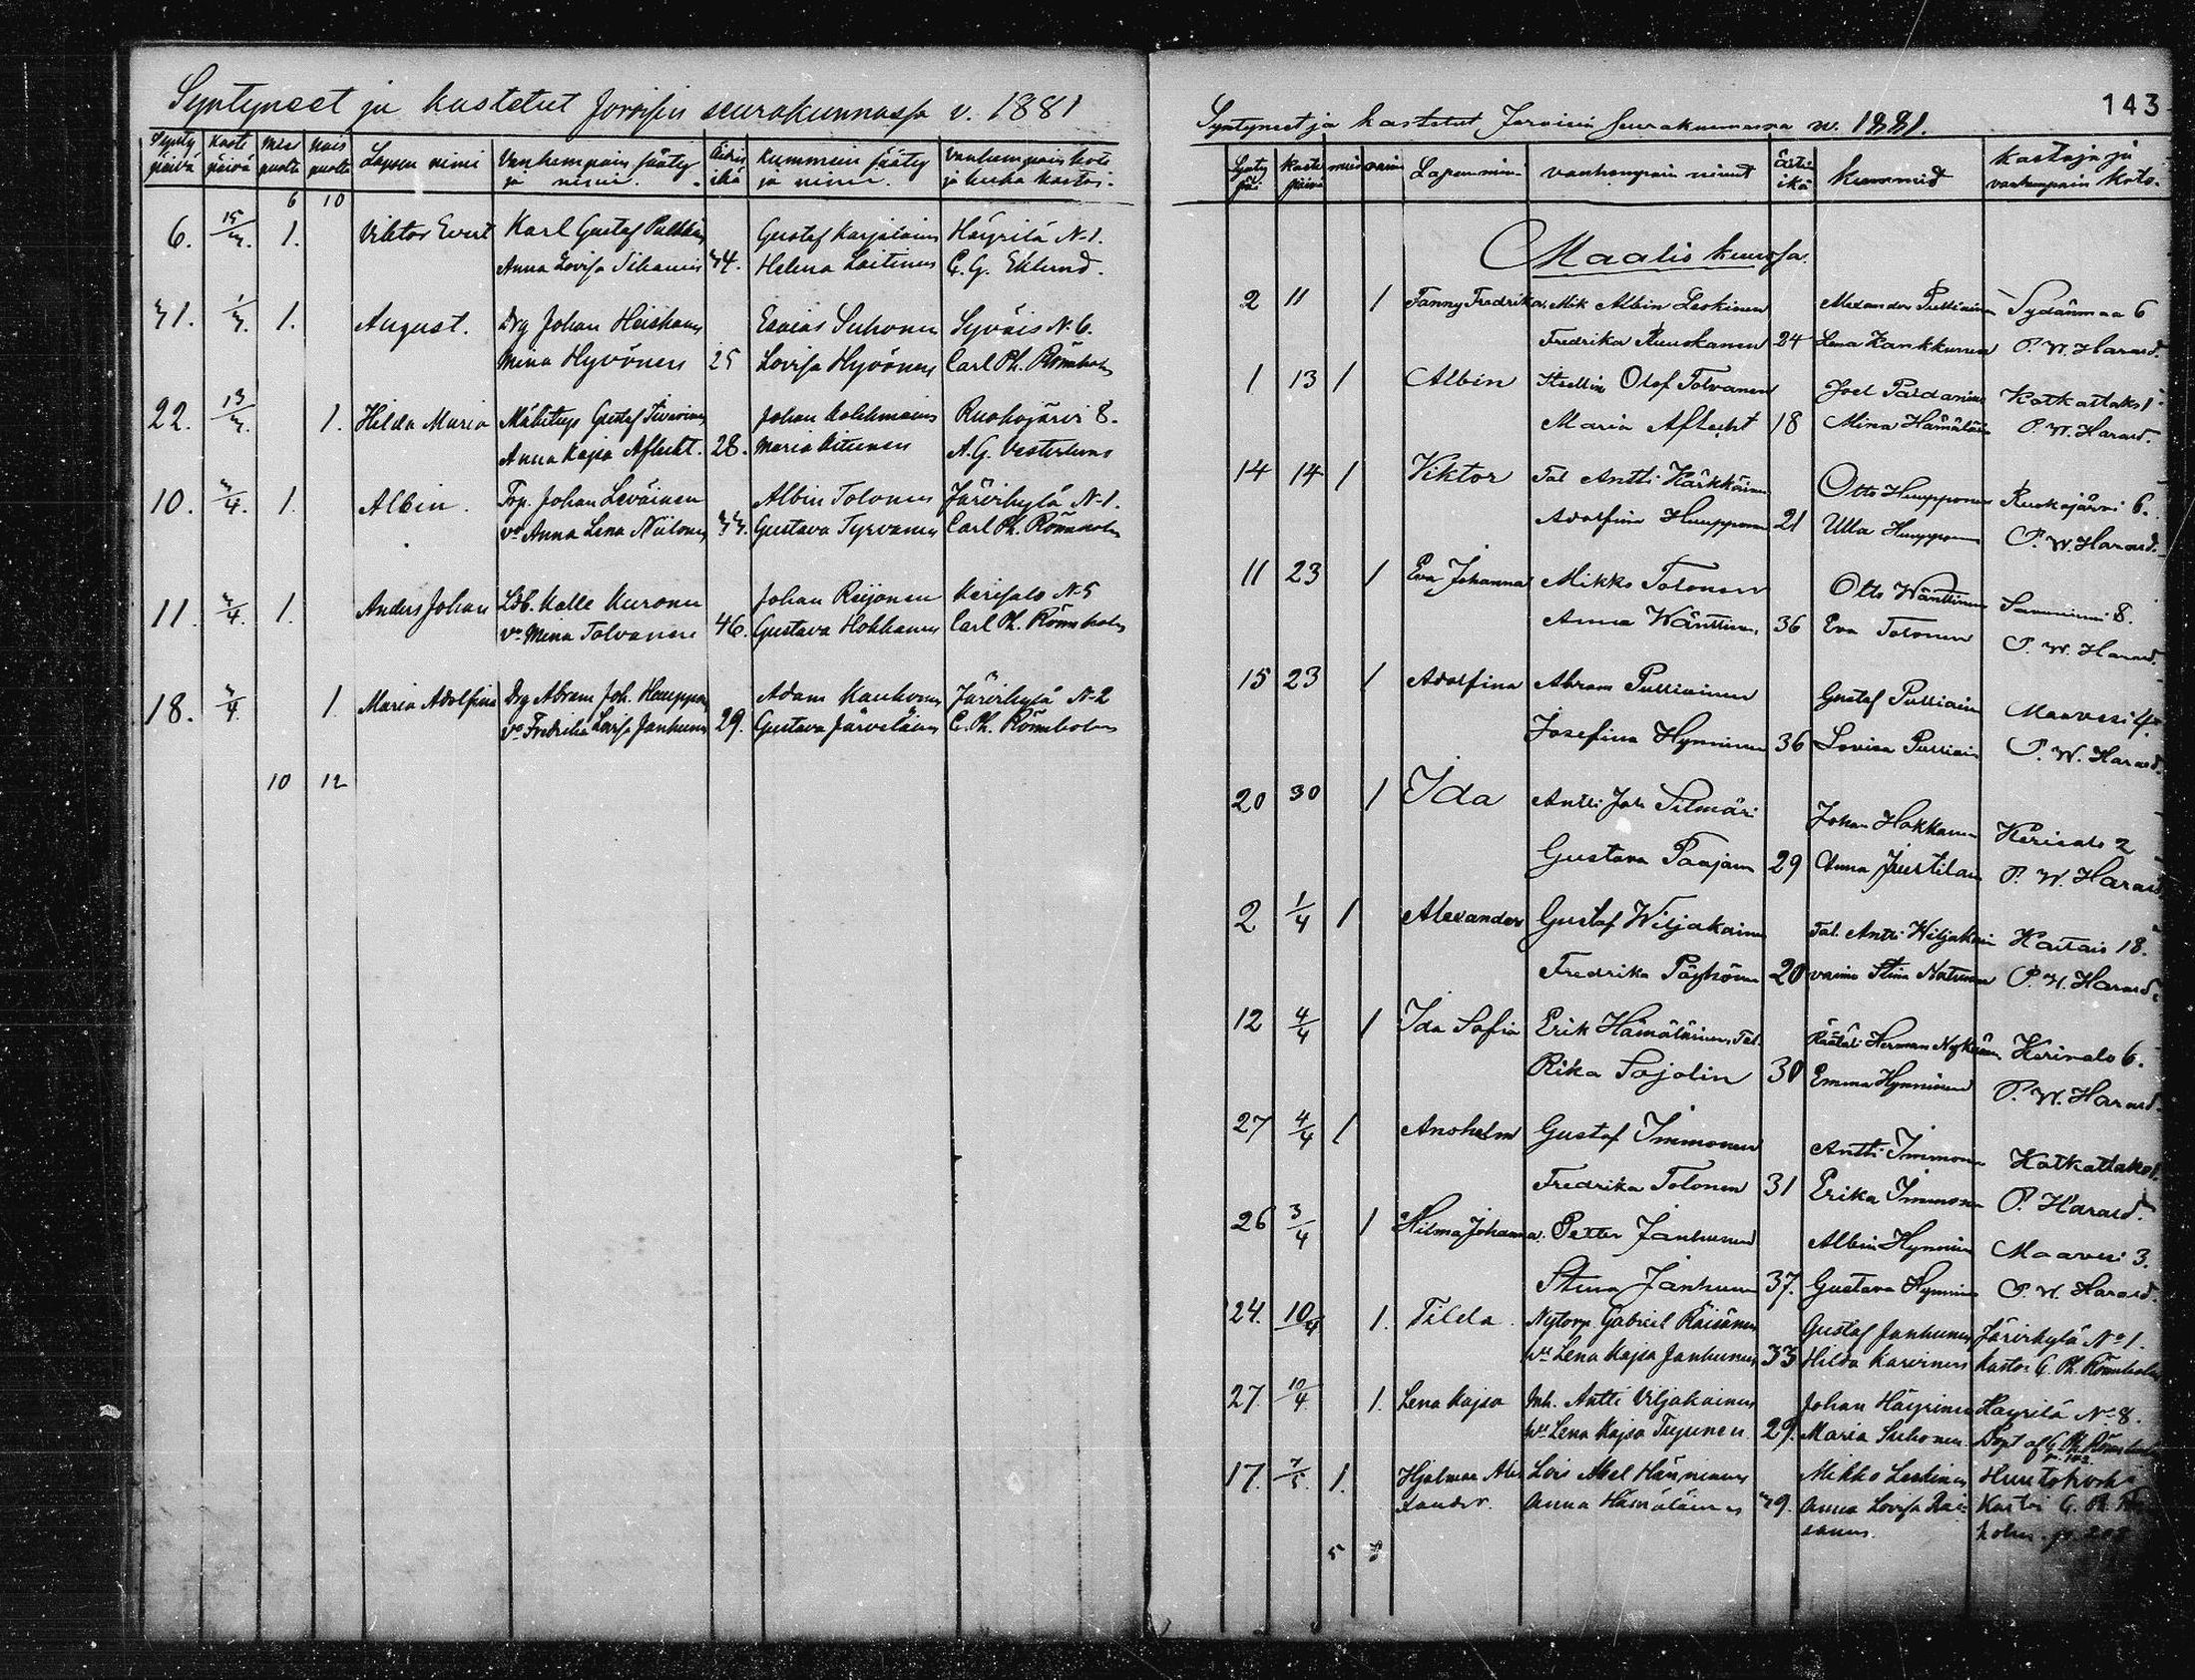 Syntyneet ja kastetut Joroisin seurakunnassa v. 1881
Synty päivä Kaste päivä Mies puolta Nais puolta Lapsen nimi Vanhempain sääty ja nimi. Äidin ikä Kummein sääty ja nimi. Vanhempain koti ja kuka kastoi.
6 10
6. 15/3. 1. Viktor Evert Karl Gustaf Gustaf Karjalainen Häyrilä N-1.
Anna Lovisa 34. Helena Laitinen C. G. Eklund.
31. 1/3. 1. August. Drg Johan Heiskanen Esaias Suhonen Syväis N. 6.
Mina Hyvönen 25 Lovisa Hyvönen Carl Ph. Rönnholm
22. 13/3. 1. Hilda Maria Gustaf Johan Kolehmainen Ruokojärvi 8.
Anna Kajsa Aflecht. 28. Maria A. G. Vesterlund
10. 3/4. 1. Albin. Trp. Johan Leväinen Albin Tolonen Järvikylä N-1.
vo Anna Lena Niilonen 33. Gustava Tyrvänen Carl Ph. Rönnholm
11. 3/4. 1. Anders Johan Ldb. Kalle Kuronen Johan Reijonen Kerisalo N-5
vo Mina Tolvanen 46. Gustava Hokkanen Carl Ph. Rönnholm
18. 3/4. 1. Maria Adolfina Drg Abram Joh. Huuppon Adam Kauhonen Järvikylä N-2
vo Fredrika Lovisa Janhunen 29. Gustava Järveläinen C. Ph. Rönnholm
10 12
143
Syntyneet ja kastetut Joroisin seurakunnassa w. 1881.
Synty päi kaste päivä mies vaim Lapsen nimi vanhempain nimet Äiti ikä kummid kastaja ja vanhempain koto.
Maalis kuussa.
2 11 1 Fanny Fredrika. Mik Albin Leskinen Alexander Pulliainen Sydänmaa 6
Fredrika Ruuskanen 24 Lena Kankkunen P. W. Harard.
1 13 1 Albin Itsellin Olof Tolvanen Joel Paldanius Katkattaks 1
Maria Aflecht 18 Mina Hämäläin P. W. Harard.
14 14 1 Viktor Tal Antti Kärkkäinen Otto Huupponen Ruokojärvi 6.
Adolfina Huupponen 21 Ulla Huupponen P. W. Harard.
11 23 1 Eva Johanna Mikko Tolonen Otto Wänttinen 8.
Anna Wänttinen, 36 Eva Tolonen P. W. Harard.
15 23 1 Adolfina Abram Pulliainen Gustaf Pulliain Maavesi 4
Josefina Hynninen 36 Lovisa Pulliain P. W. Harard.
20 30 1 Ida Antti Joh Silmäri Johan Hokkanen Kerisalo 2
Gustava Paajan 29 Anna P. W. Harard
2 1/4 1 Alexander Gustaf Wiljakainen Tal. Antti Wiljakain Kaitais 18.
Fredrika Pöyhönen 20 vaimo Stina Natunen P. W. Harard.
12 4/4 1 Ida Sofia Erik Hämäläinen, Tal. Räätäli Herman Nykänen Kerisalo 6.
Rika Sojolin 30 Emma Hynninen P. W. Harard.
27 4/4 1 Anshelm Gustaf Immonen Antti Immonen Katkattaks 1.
Fredrika Tolonen 31 Erika Immonen P. Harard.
26 3/4 1 Hilma Johanna. Petter Janhunen Albin Hynnin Maavesi 3.
Stina Janhunen 37. Gustava Hynnin P. W. Harard.
24. 10/4 1. Tilda. Nytorp. Gabriel Räisänen Gustaf Janhunen Järvikylä No 1.
wo Lena Kajsa Janhunen 33 Hilda Karvinen kastoi C. Ph. Rönnholm
27. 10/4 1. Lena Kajsa Inh. Antti Viljakainen Johan Häyrinen Häyrilä No 8.
wo Lena Kajsa Tujunen. 29. Maria Suhonen Döpt af C. Ph. Rönnholm
17. 7/5. 1. Hjalmar Alex Lois Abel Hänninen Mikko Leskinen Huutokoski
xander. Anna Hämäläinen 39. Anna Lovisa Räi- Kastoi C. Ph. Rönn
sänen. holm.
5 8